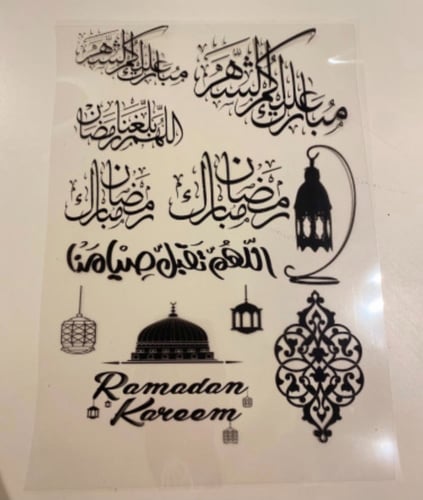 مبارك عليكم الشهر
مبارك عليكم الشهر
اللهم بلغنا رمضان
رمضان مبارك
رمضان مبارك
اللهم تقبل صيامنا
Ramadan
Kareem